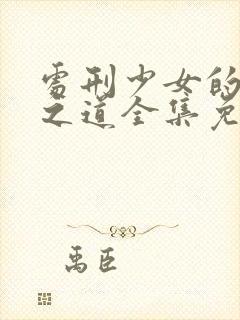 处刑少女的
之道全集免
禹臣